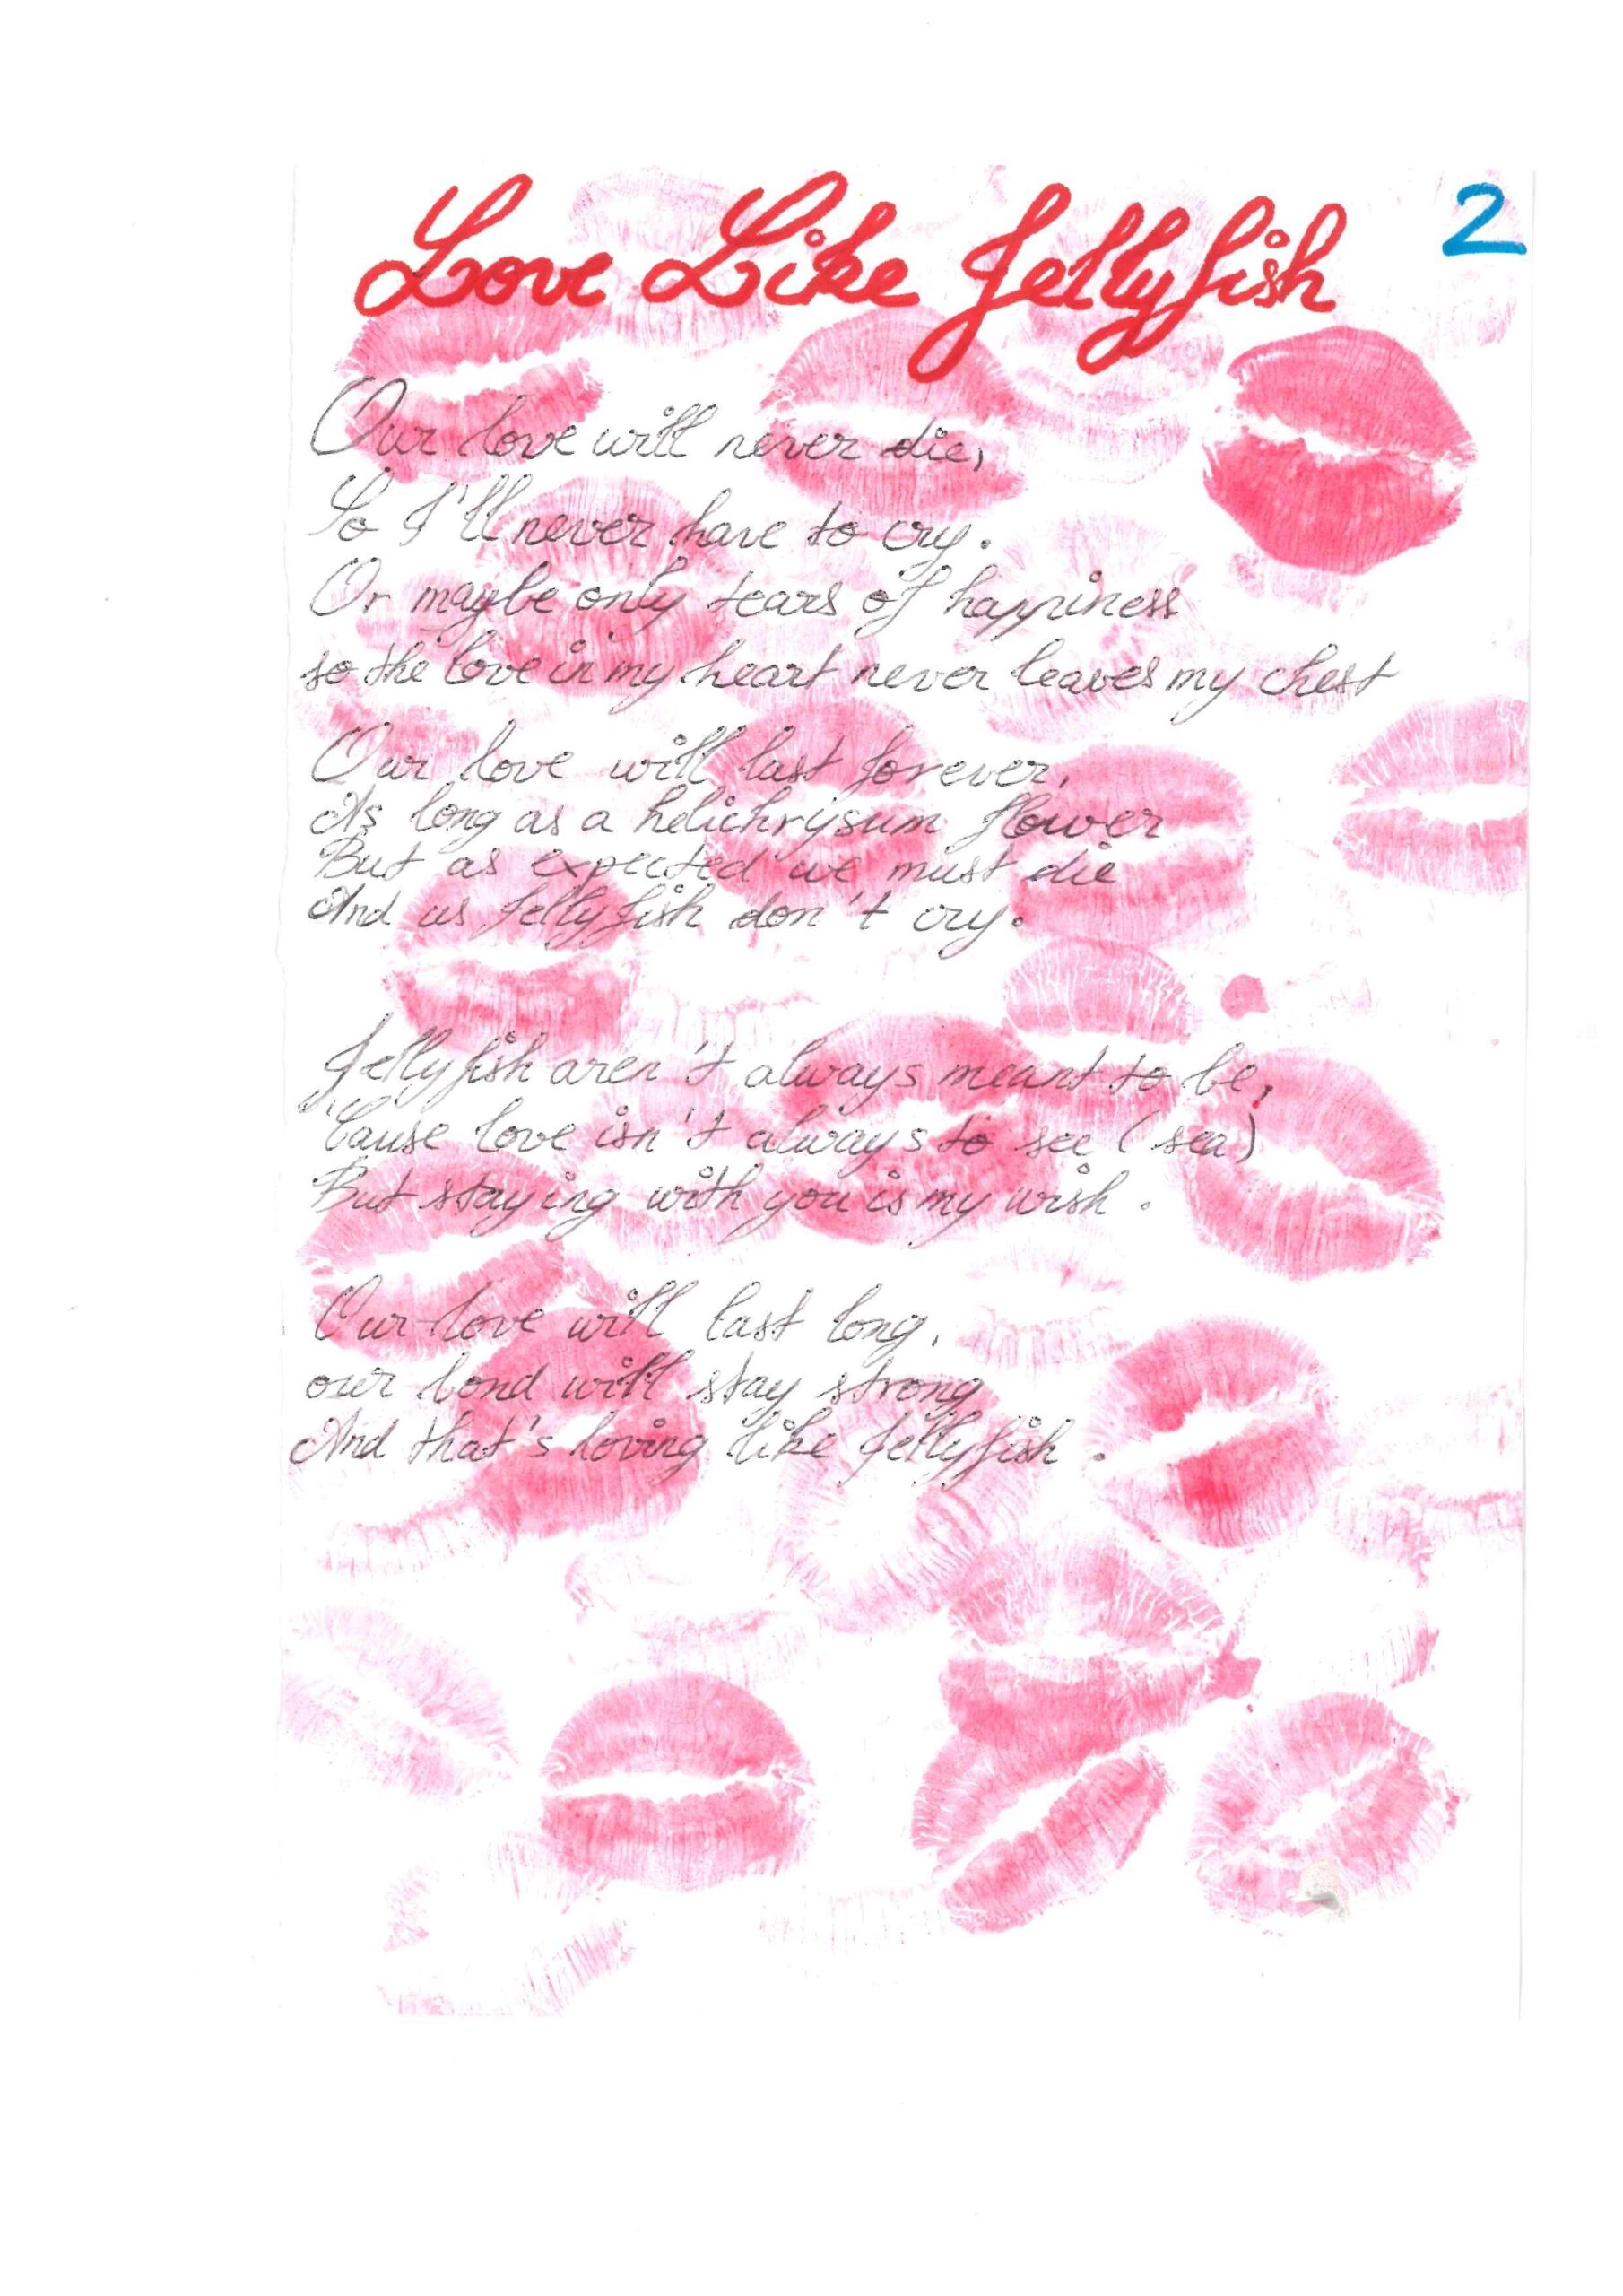 Love Like Jellyfish
2
Our love will never die,
So I'll never have to cry.
Or maybe only tears of happiness
so the love in my heart never leaves my chest
Our love will last forever,
As long as a helichrysum flower
But as expected we must die
And us Jellyfish don't cry.
Jellyfish aren't always meant to be,
'Cause love isn't always to see (sea)
But staying with you is my wish.
Our love will last long,
our bond will stay strong
And that's loving like Jellyfish.